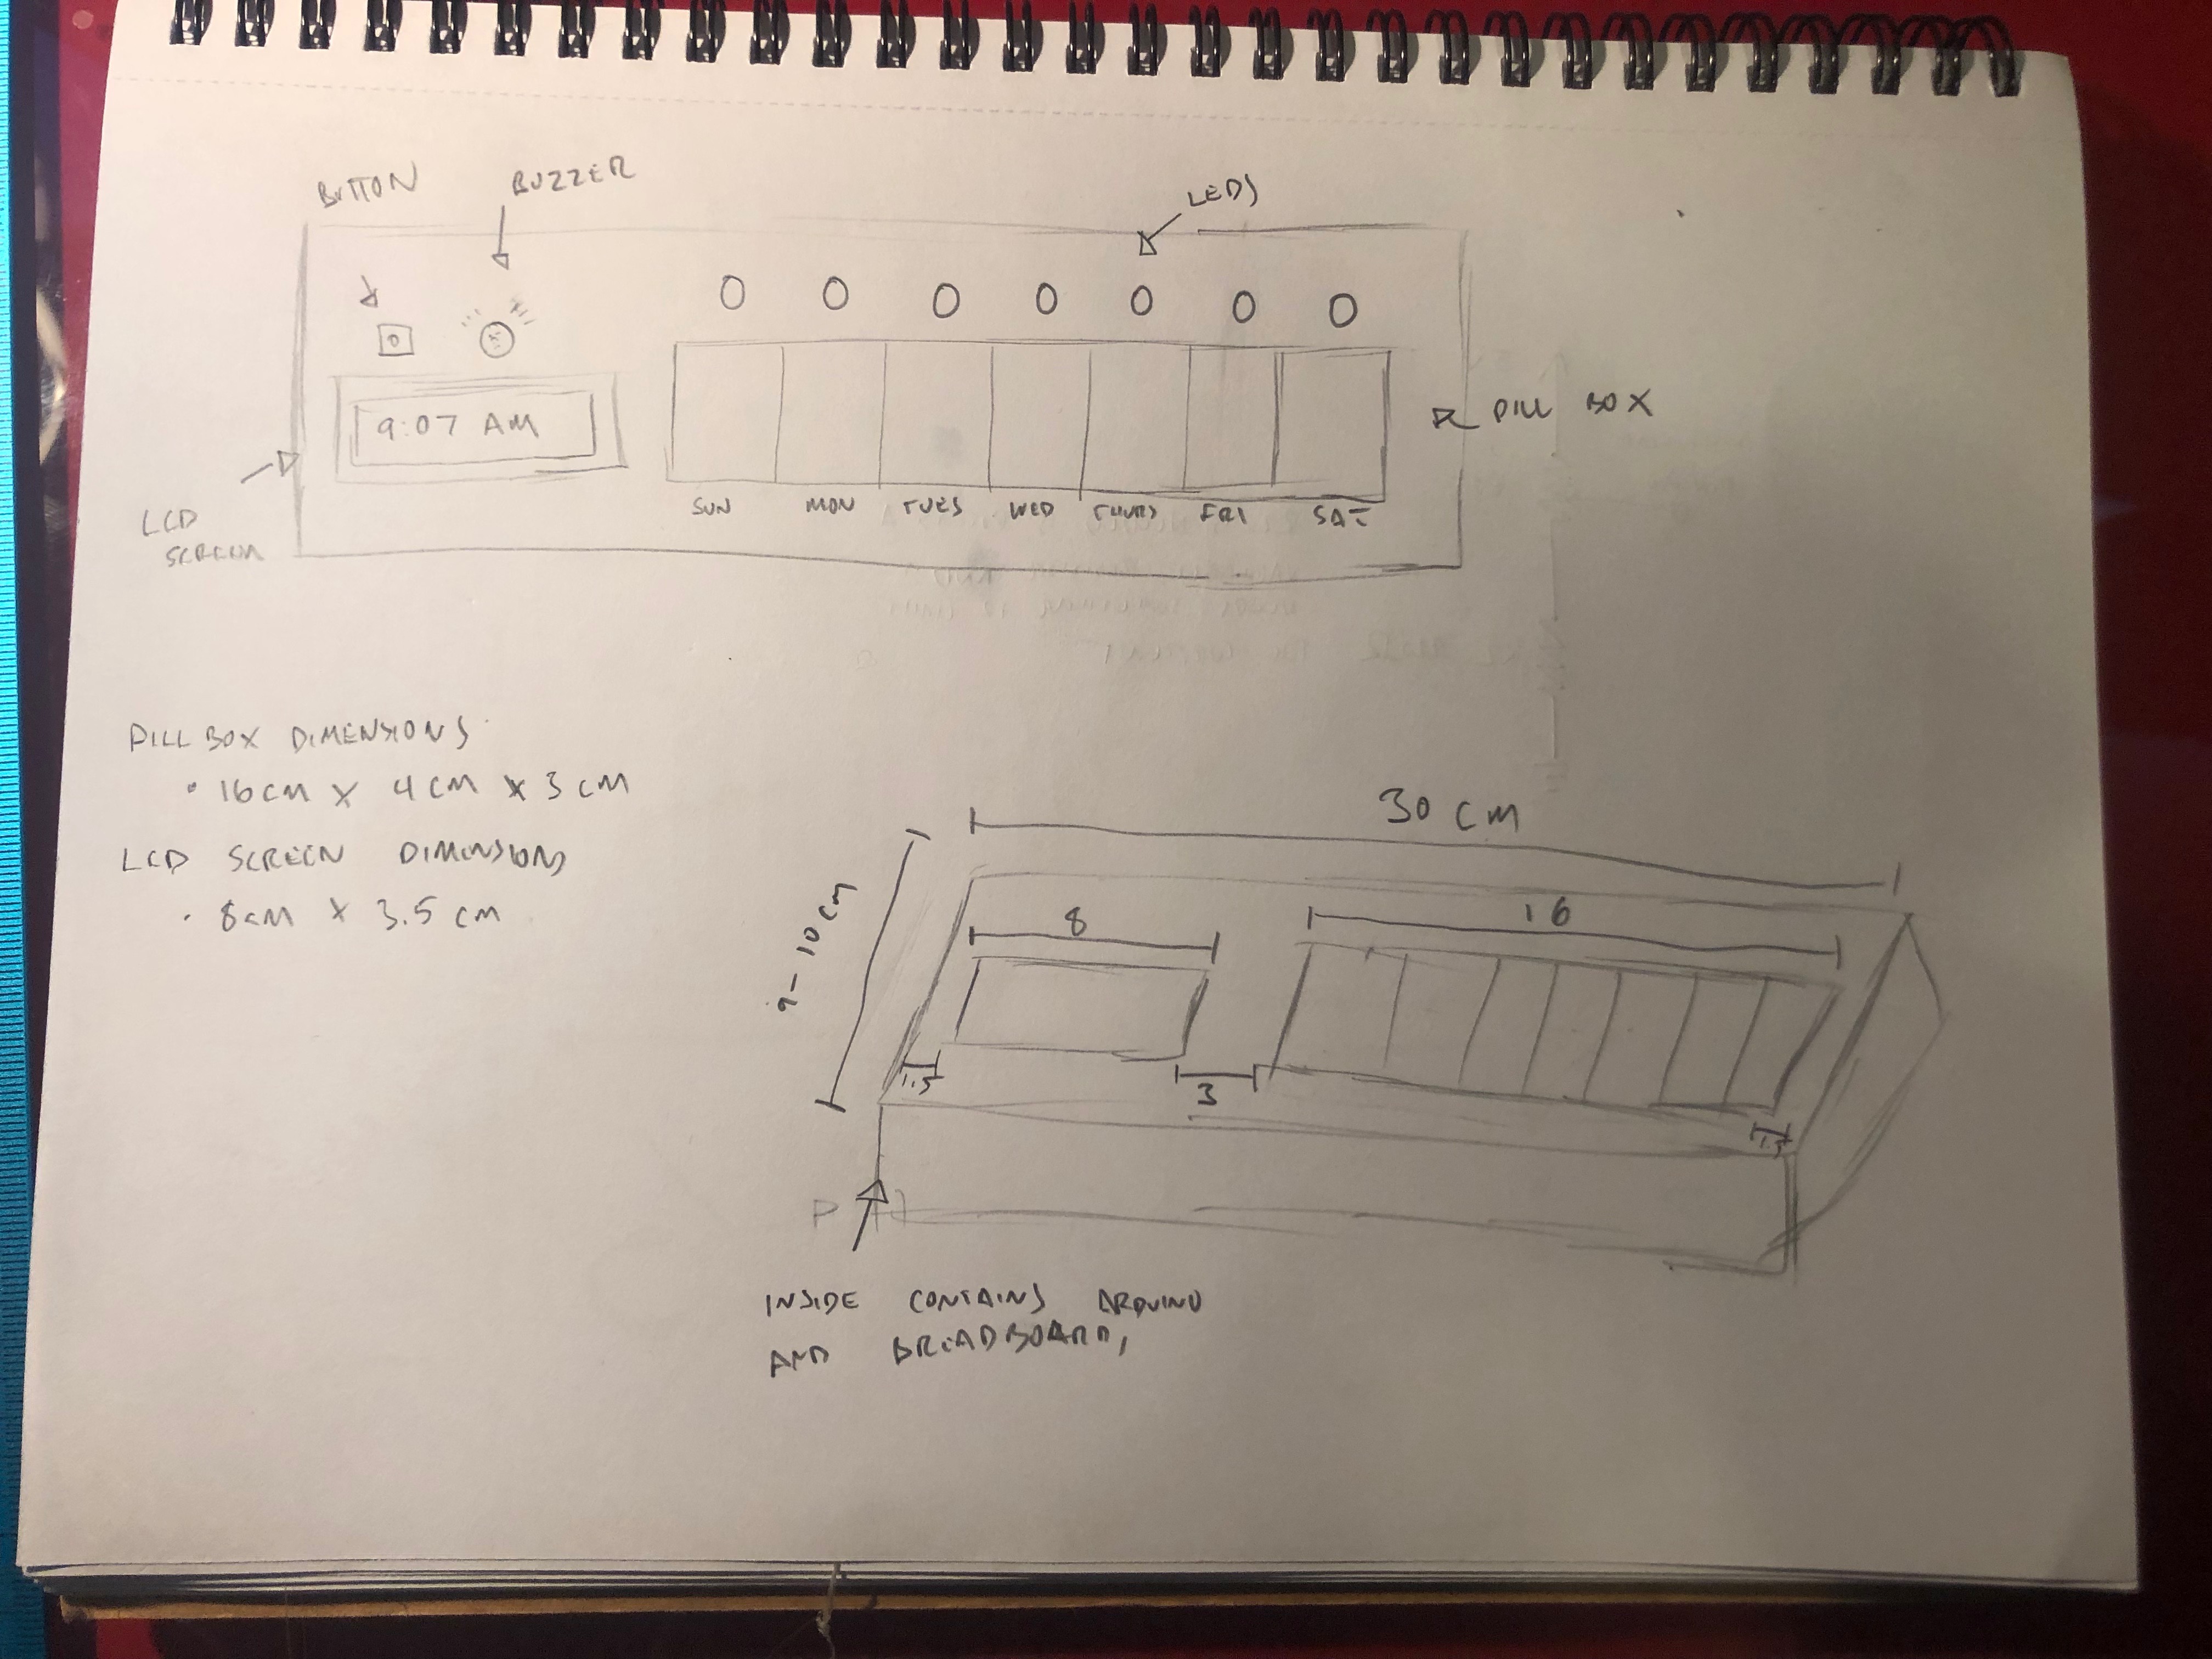 BUTTON
BUZZER
LEDS
9:07 AM
PILL BOX
LCD
SCREEN
SUN MON TUES WED THURS FRI SAT
PILL BOX DIMENSIONS
• 16cm x 4cm x 3cm
LCD SCREEN DIMENSIONS
• 8cm x 3.5 cm
30 cm
9-10cm
8
16
1.5
3
1.5
P
INSIDE CONTAINS ARDUINO
AND BREADBOARD,